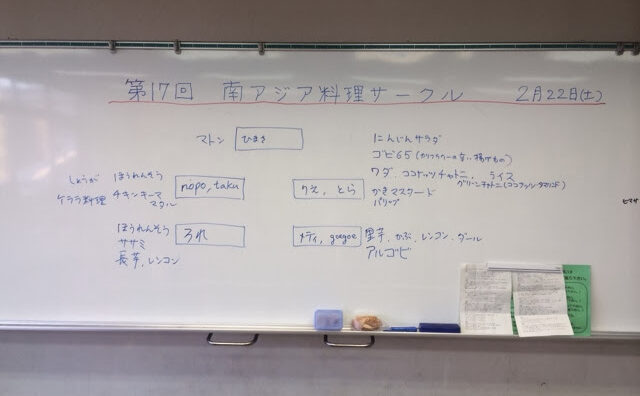 第17回 南アジア料理サークル 2月22日(土)
マトン ひまさ
にんじんサラダ
ゴビ65(カリフラワーの 揚げもの)
ワダ、ココナッツチャトニ、ライス
グリーンチャトニ(ココナッツ・タマリンド)
しょうが ほうれんそう
ケララ料理 チキンキーマ
nopo, taku
りえ、とら
かきマスタード
ほうれんそう
ササミ
長芋,レンコン
ろれ
メディ, goegoe
里芋、かぶ、レンコン、ダール
アルゴビ
ヒマサ